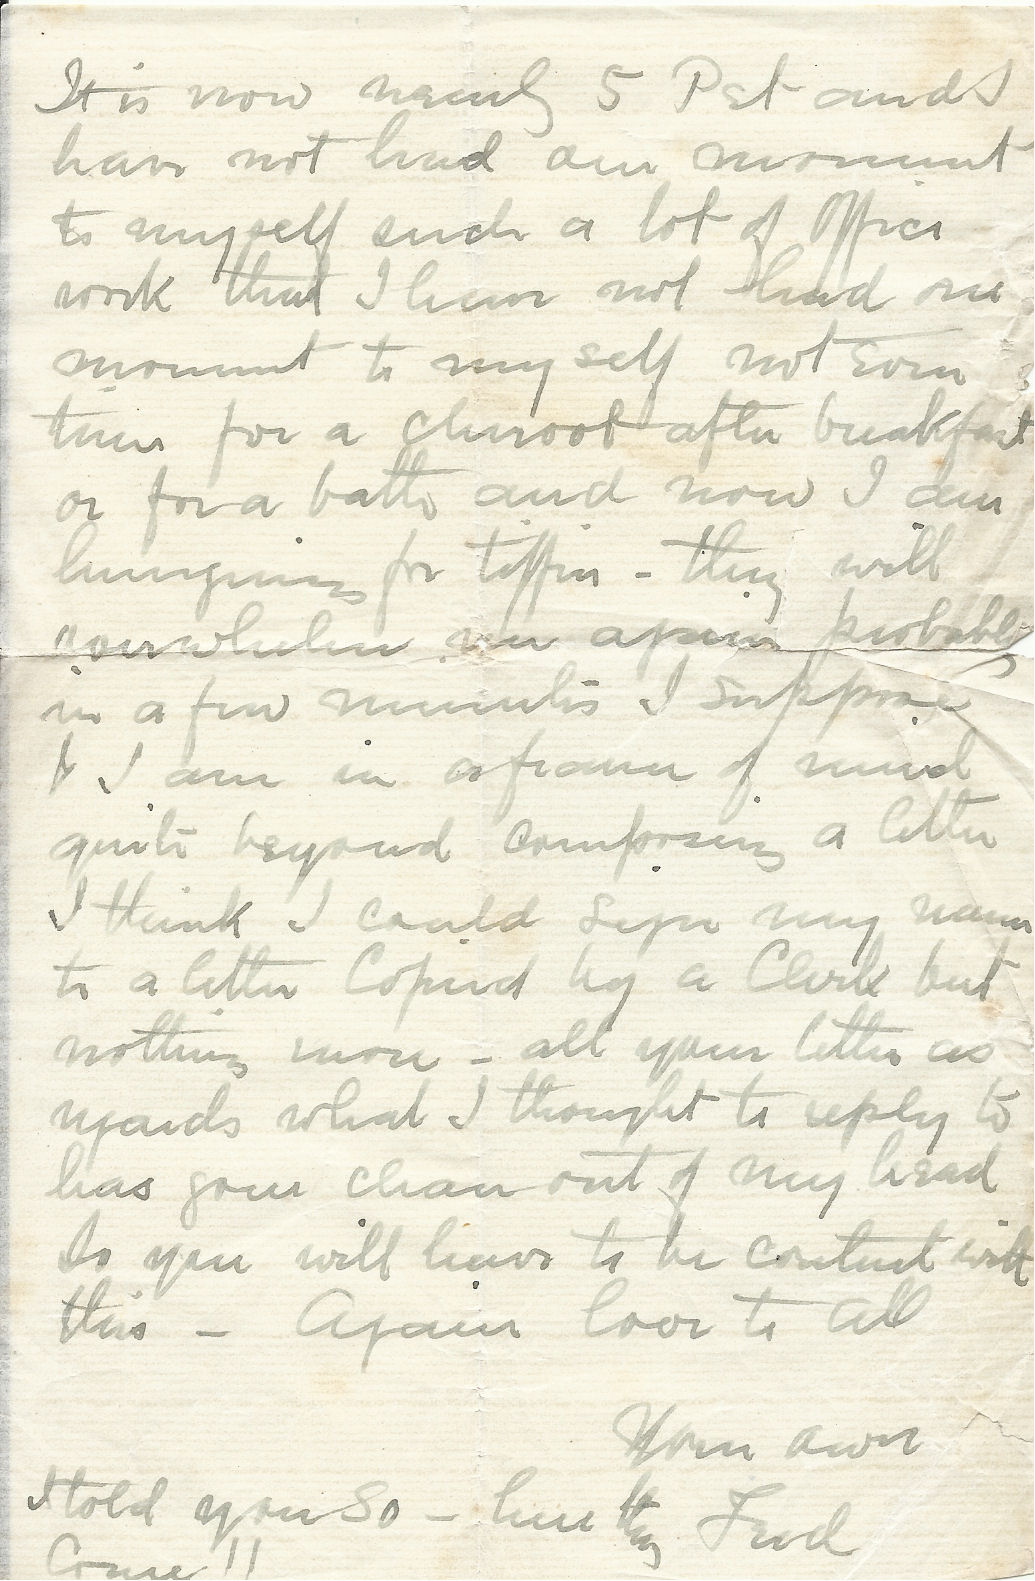 It is now nearly 5 Pst and I
have not had one moment
to myself such a lot of Office
work that I have not had one
moment to myself not even
time for a cheroot after breakfast
or for a bath and now I am
hungering for tiffin - they will
overwhelm me again probably
in a few minutes I suppose
& I am in a frame of mind
quite beyond composing a letter
I think I could sign my name
to a letter Copied by a Clerk but
nothing more - all your letter as
regards what I thought to reply to
has gone clean out of my head
So you will have to be content with
this - Again love to all
Your own
Fred
I told you so - here they
Come!!